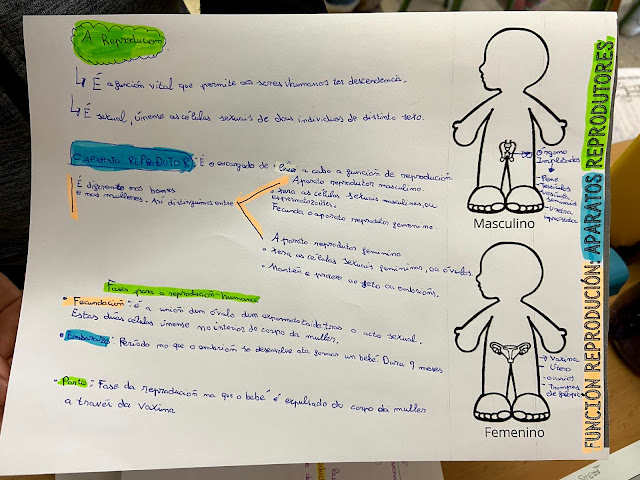 A Reproducion
É a función vital que permite aos seres humanos ter descendencia.
É sexual, únense as células sexuais de dous individuos de distinto sexo.
O APARATO REPRODUTOR: É o encargado de levar a cabo a función de reprodución
É diferente nos homes
e nas mulleres. Así distinguimos entre
Aparato reprodutor masculino.
Xera as células sexuais masculinas, ou
espermatozoides.
Fecunda o aparato reprodutor femenino.
Aparato reprodutor femenino
Xera as células sexuais femininas, ou óvulos.
Mantén e protexe ao feto ou embrión.
Fases para a reprodución humana
Fecundación: é a unión dun óvulo dun espermatozoide tras o acto sexual.
Estas dúas células únense no interior do corpo da muller.
Embarazo: Período no que o embrión se desenvolve ata formar un bebé. Dura 9 meses
Parto: Fase da reprodución na que o bebé é expulsado do corpo da muller
a través da vaxina
Órganos
Implicados
Pene
Testículos
vesículas
seminais
Uretra
próstata
Masculino
Vaxina
Útero
ovarios
Trompas
de falopio
Femenino
FUNCIÓN REPRODUCIÓN: APARATOS REPRODUTORES